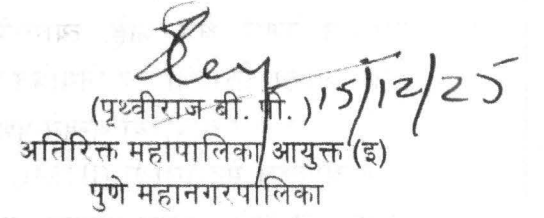 15/12/25
(पृथ्वीराज बी. पी.)
अतिरिक्त महापालिका आयुक्त (इ)
पुणे महानगरपालिका